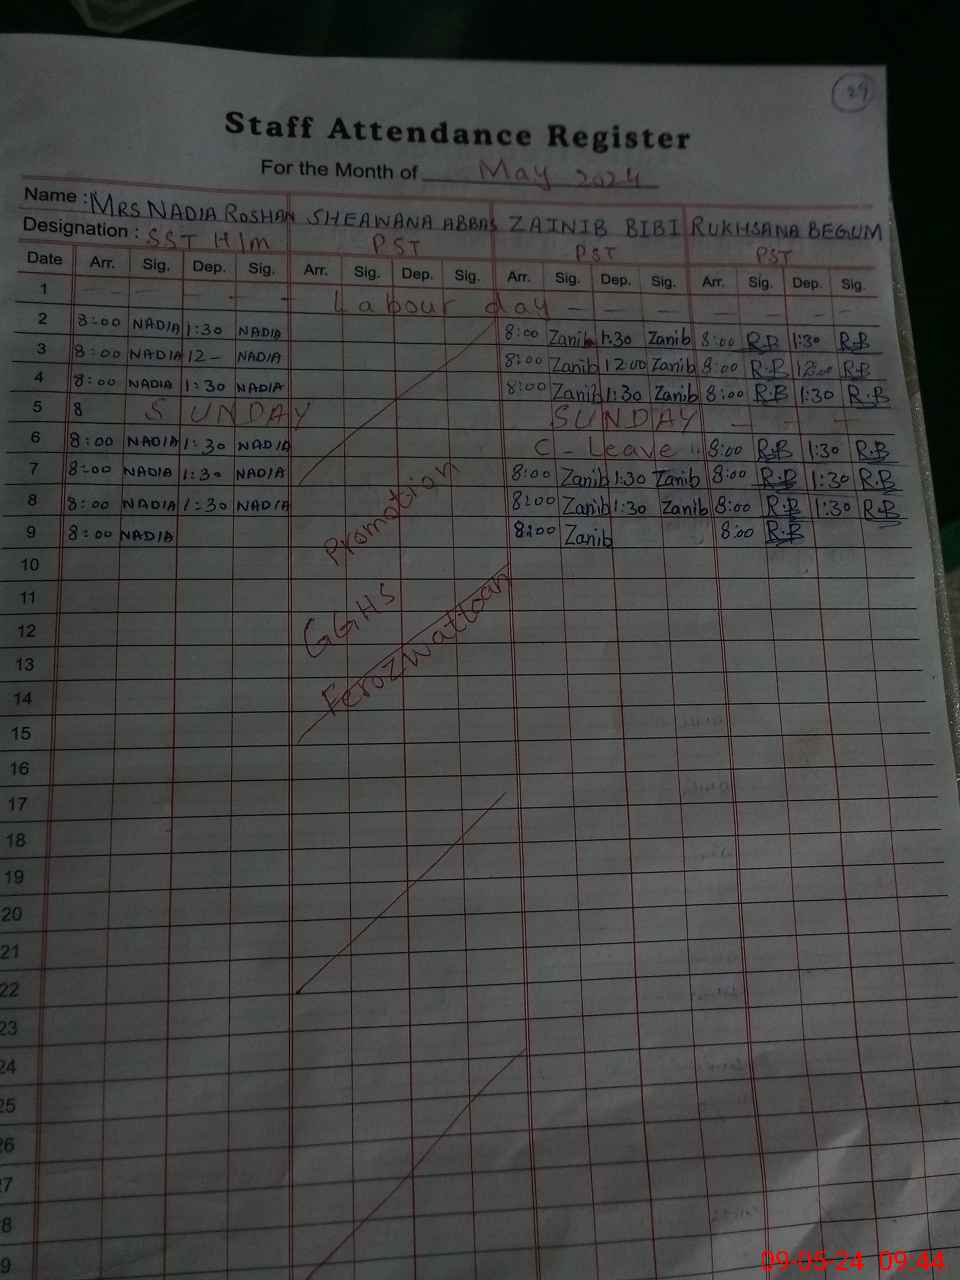 29
Staff Attendance Register
For the Month of May 2024
Name : MRS NADIA ROSHAN SHEAWANA ABBAS ZAINIB BIBI RUKHSANA BEGUM
Designation : SST HIm PST PST PST
Date Arr. Sig. Dep. Sig. Arr. Sig. Dep. Sig. Arr. Sig. Dep. Sig. Arr. Sig. Dep. Sig.
1 Labour day
2 8:00 NADIA 1:30 NADIA 8:00 Zanib 1:30 Zanib 8:00 R.B 1:30 R.B
3 8:00 NADIA 12- NADIA 8:00 Zanib 12:00 Zanib 8:00 R.B 12:00 R.B
4 8:00 NADIA 1:30 NADIA 8:00 Zanib 1:30 Zanib 8:00 R.B 1:30 R.B
5 8 SUNDAY SUNDAY
6 8:00 NADIA 1:30 NADIA C-Leave 8:00 R.B 1:30 R.B
7 8:00 NADIA 1:30 NADIA 8:00 Zanib 1:30 Zanib 8:00 R.B 1:30 R.B
8 8:00 NADIA 1:30 NADIA 8:00 Zanib 1:30 Zanib 8:00 R.B 1:30 R.B
9 8:00 NADIA 8:00 Zanib 8:00 R.B
Promotion
10
11
GGHS
12
13
Ferozwattoan
14
15
16
17
18
19
20
21
22
23
24
25
26
7
8
9
09-05-24 09:44